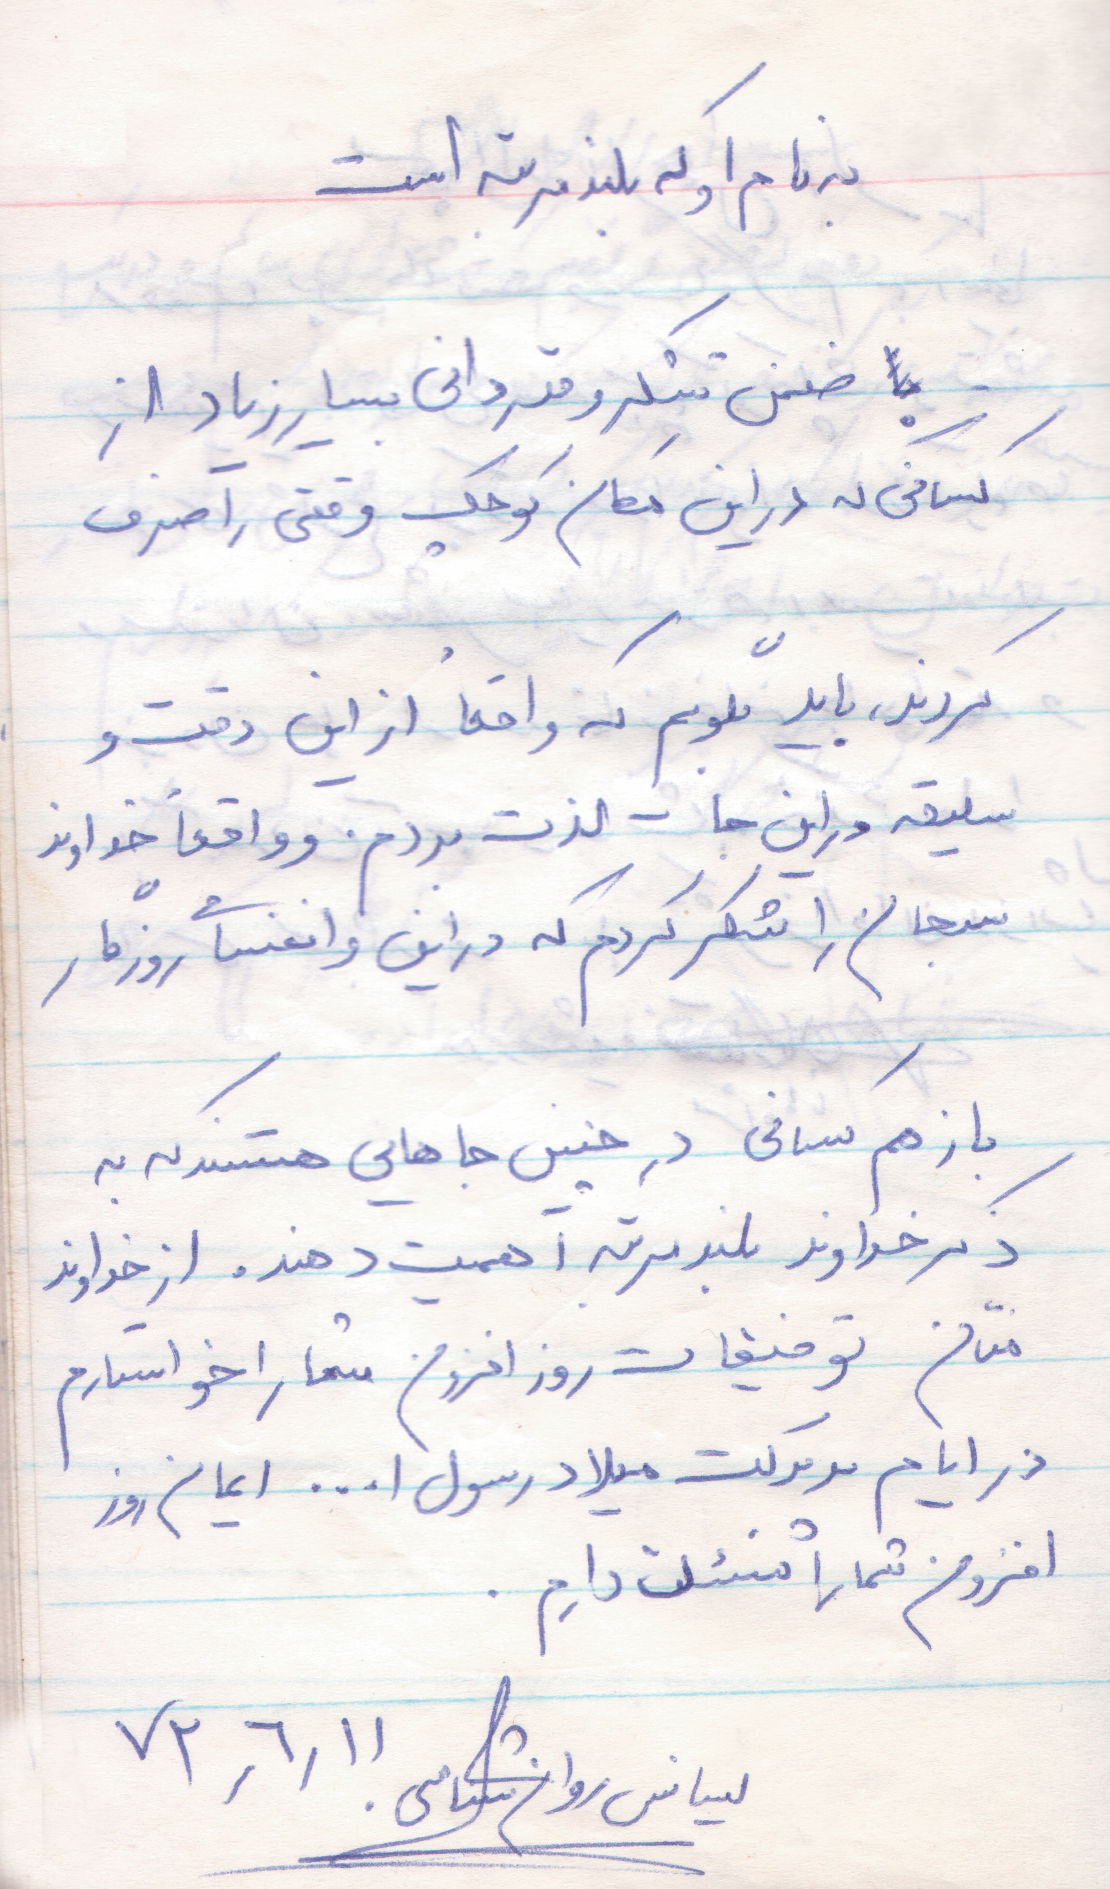 بنام او که بلند مرتبه است
- با ضمن تشکر و قدردانی بسیار زیاد از
کسانی که در این مکان کوچک وقتی را صرف
کردند، باید بگویم که واقعاً از این دقت و
سلیقه در این جا - لذت بردم. و واقعاً خداوند
سبحان را شکر کردم که در این وانفسای روزگار
باز هم کسانی در چنین جاهایی هستند که به
ذکر خداوند بلند مرتبه اهمیت دهند. از خداوند
منّان توفیقات روز افزون شما را خواستارم
در ایام پر برکت میلاد رسول ا... ایمان روز
افزون شما را مسئلت دارم.
لیسانس روان شناسی. ۷۲٫۶٫۱۱